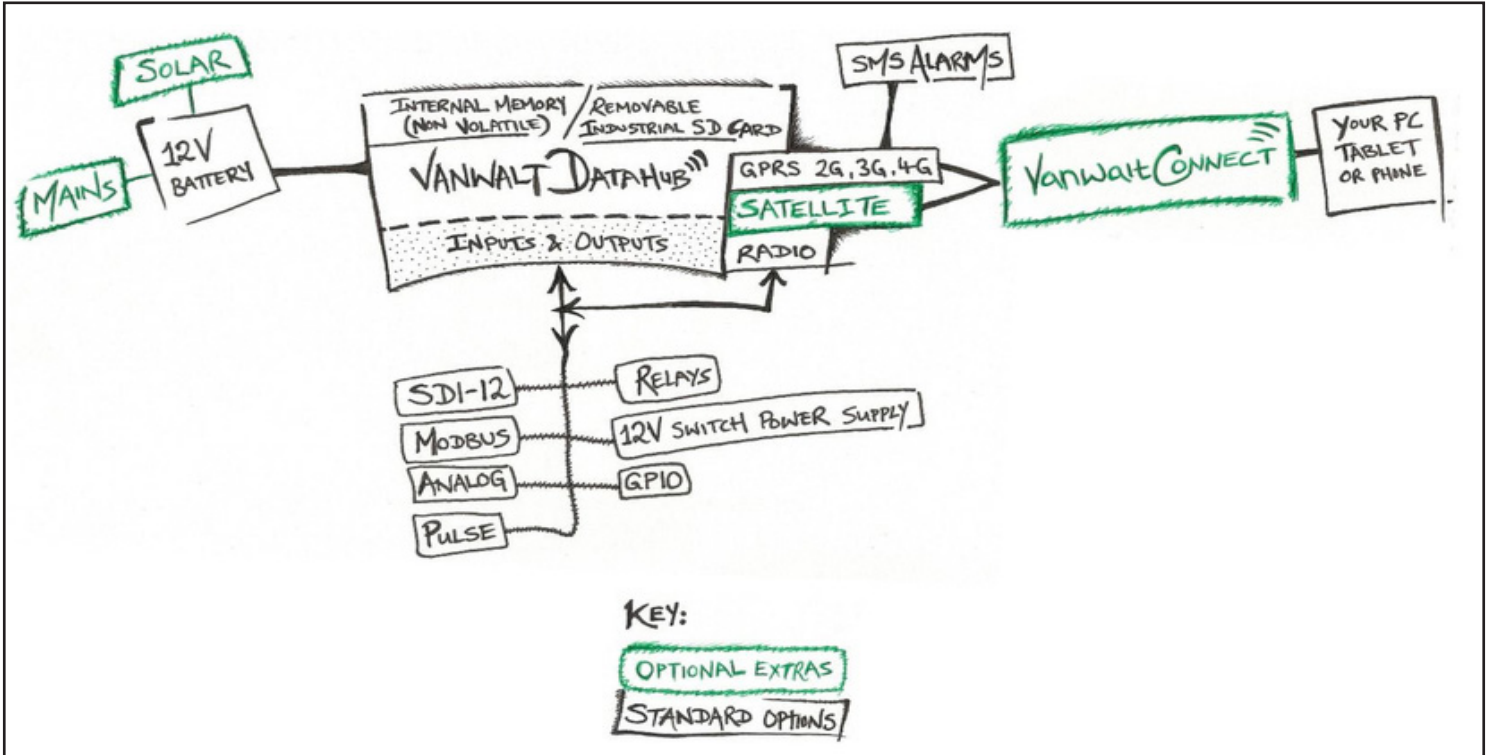 SOLAR
MAINS
12V
BATTERY
INTERNAL MEMORY / REMOVABLE
(NON VOLATILE) INDUSTRIAL SD CARD
VANWALT DATAHUB
INPUTS & OUTPUTS
SMS ALARMS
GPRS 2G, 3G, 4G
SATELLITE
RADIO
VanWalt CONNECT
YOUR PC
TABLET
OR PHONE
SDI-12
RELAYS
MODBUS
12V SWITCH POWER SUPPLY
ANALOG
GPIO
PULSE
KEY:
OPTIONAL EXTRAS
STANDARD OPTIONS